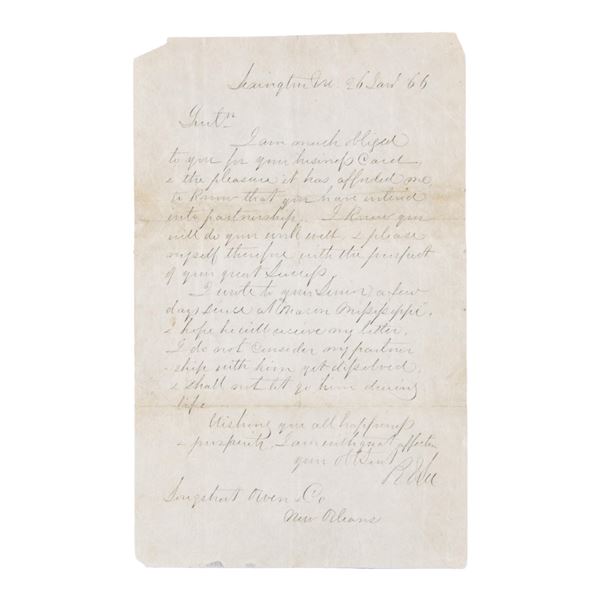 Lexington Va. 26 Jan' 66
Gentn
I am much obliged
to you for your business Card
& the pleasure it has afforded me
to know that you have entered
into partnership. I know you
will do your work well & please
myself therefore with the prospect
of your great success.
I wrote to your Senior a few
days since at Macon Mississippi,
& hope he will receive my letter.
I do not consider my partner
-ship with him yet dissolved,
& shall not let go him during
life
Wishing you all happiness
& prosperity, I am with great affection
your Obt Servt
R E Lee
Longstreet Owen & Co
New Orleans